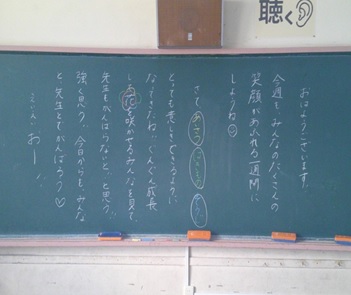 聴く
おはようございます。
今週も、みんなのたくさんの
笑顔があふれる一週間に
しようね
さて、あいさつ
とっても美しくできるように
なってきたね。ぐんぐん成長
し、花を咲かせるみんなを見て、
先生もがんばらないと、と思う。
強く思う。今日からも、みんな
と先生とでがんばろう♡
えい、えい、おー！